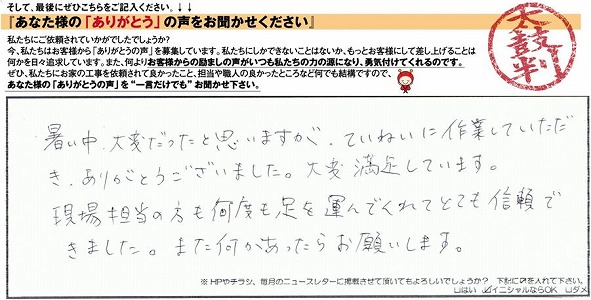 そして、最後にぜひこちらをご記入ください。↓↓
『あなた様の「ありがとう」の声をお聞かせください』
私たちにご依頼されていかがでしたでしょうか?
今、私たちはお客様から「ありがとうの声」を募集しています。私たちにしかできないことはないか、もっとお客様にして差し上げることは
何かを日々追求しています。また、何よりお客様からの励ましの声がいつも私たちの力の源になり、勇気付けてくれるのです。
ぜひ、私たちにお家の工事を依頼されて良かったこと、担当や職人の良かったところなど何でも結構ですので、
あなた様の「ありがとうの声」を"一言だけでも"お聞かせ下さい。
太鼓判
暑い中、大変だったと思いますが、ていねいに作業していただ
き、ありがとうございました。大変満足しています。
現場担当の方も何度も足を運んでくれてとても信頼で
きました。また何かあったらお願いします。
※HPやチラシ、毎月のニュースレターに掲載させて頂いてもよろしいでしょうか? 下記に☑を入れて下さい。
□はい ☑イニシャルならOK □ダメ